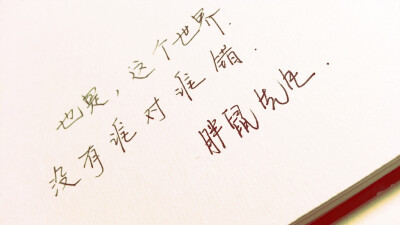 也是，这个世界.
没有谁对谁错.
胖鼠先生.